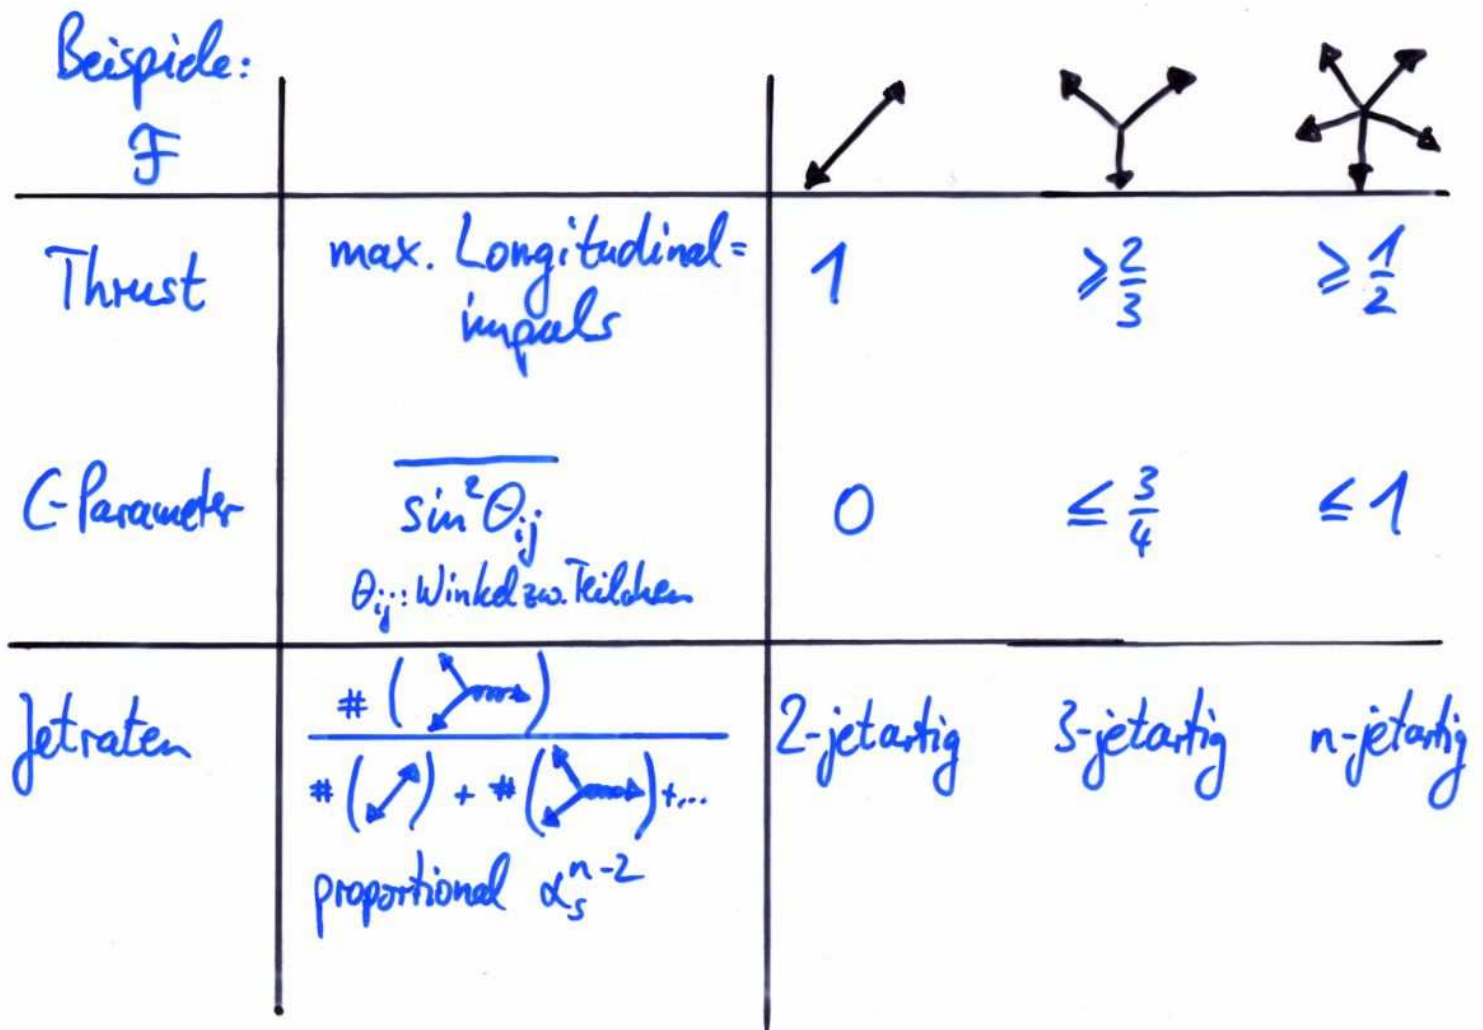 Beispiele:
ℱ
Thrust
max. Longitudinal=
impuls
1
≥ 2/3
≥ 1/2
C-Parameter
sin²θij
θij: Winkel zw. Teilchen
0
≤ 3/4
≤ 1
Jetraten
# ( )
# ( ) + # ( ) + ...
proportional αs^n-2
2-jetartig
3-jetartig
n-jetartig